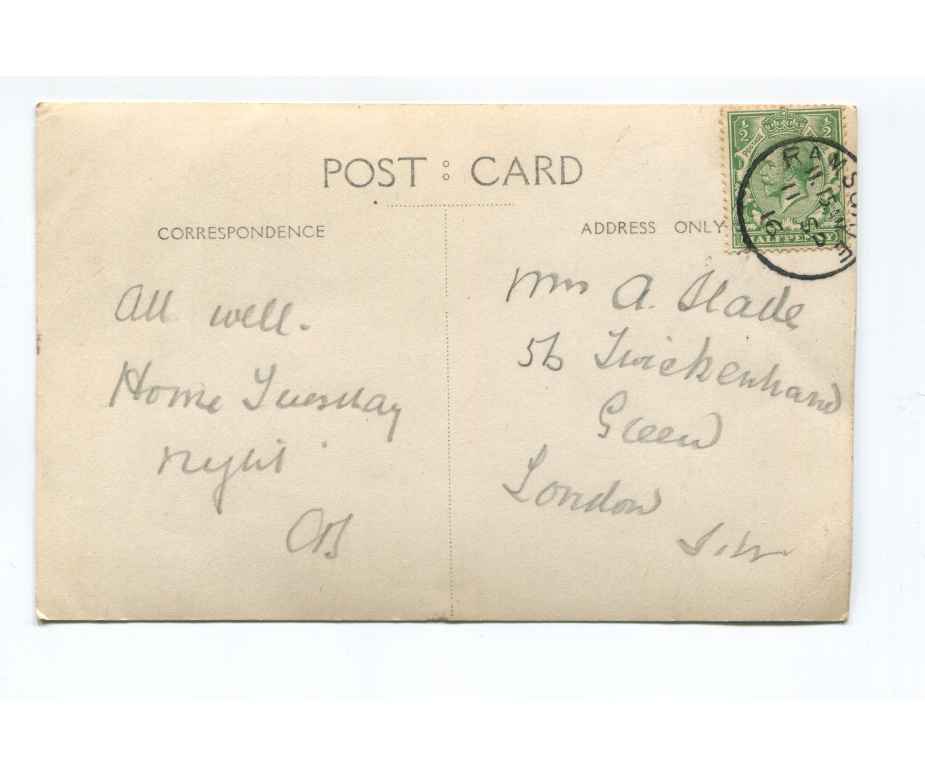 POST CARD
CORRESPONDENCE
ADDRESS ONLY
½ ½
HALFPENNY
11
SP
16
All well.
Home Tuesday
night
Mrs A. Slade
56 Twickenham
Green
London
S.W.